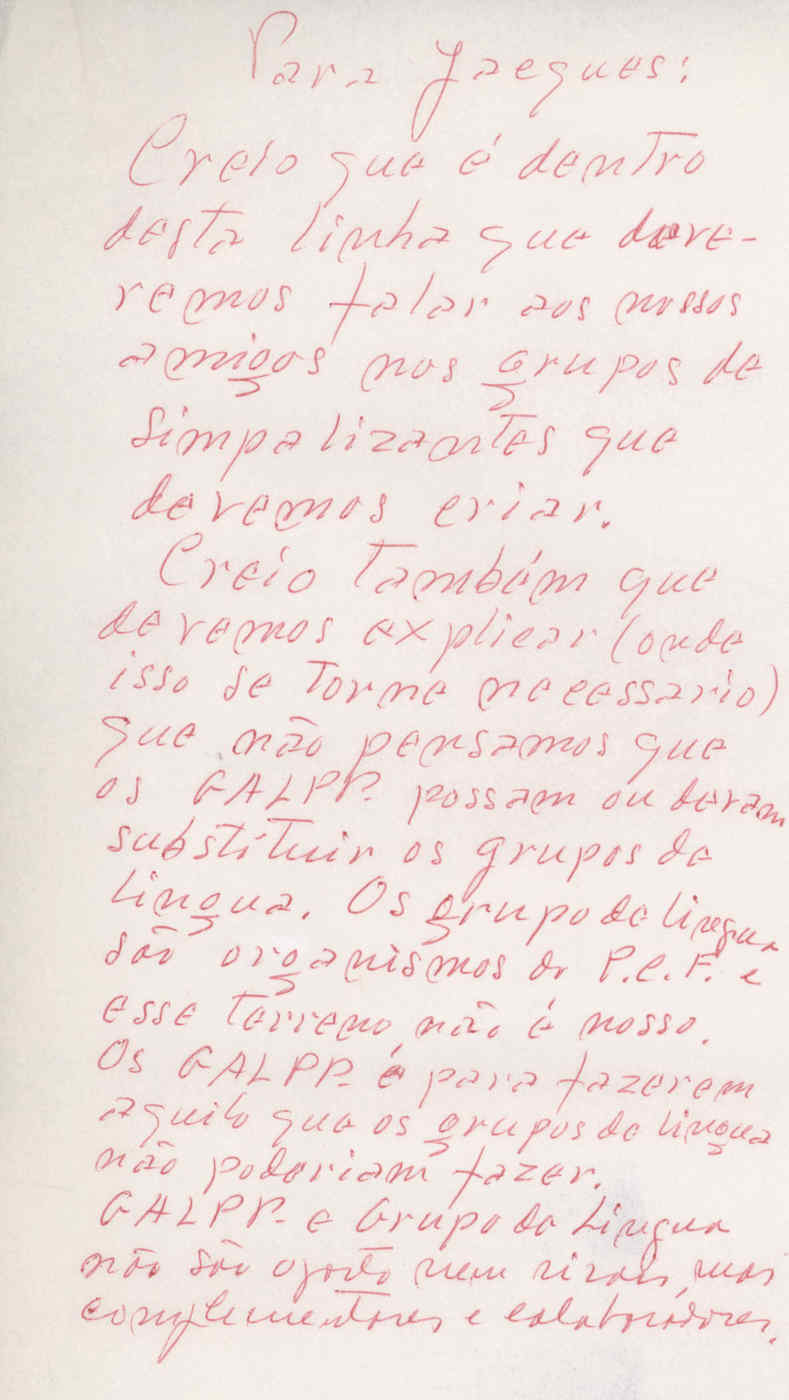 Para Jacques:
Creio que é dentro
desta linha que deve-
remos falar aos nossos
amigos nos grupos de
Simpalizantes que
devemos criar.
Creio também que
devemos explicar (onde
isso se torne necessario)
que não pensamos que
os GALPP. possam ou devam
substituir os grupos de
Lingua. Os grupo de lingua
são organismos do P.C.F. e
esse terreno não é nosso.
Os GALPP. é para fazerem
aquilo que os grupos de lingua
não poderiam fazer.
GALPP. e Grupo de Lingua
não são oposto nem rivais, mas
complementares e colaboradores.